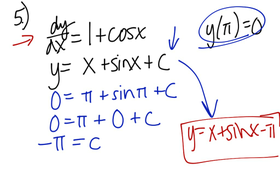 5.) dy/dx = 1 + cosx
y(π) = 0
y = x + sinx + C
0 = π + sinπ + C
0 = π + 0 + C
-π = C
y = x + sinx - π